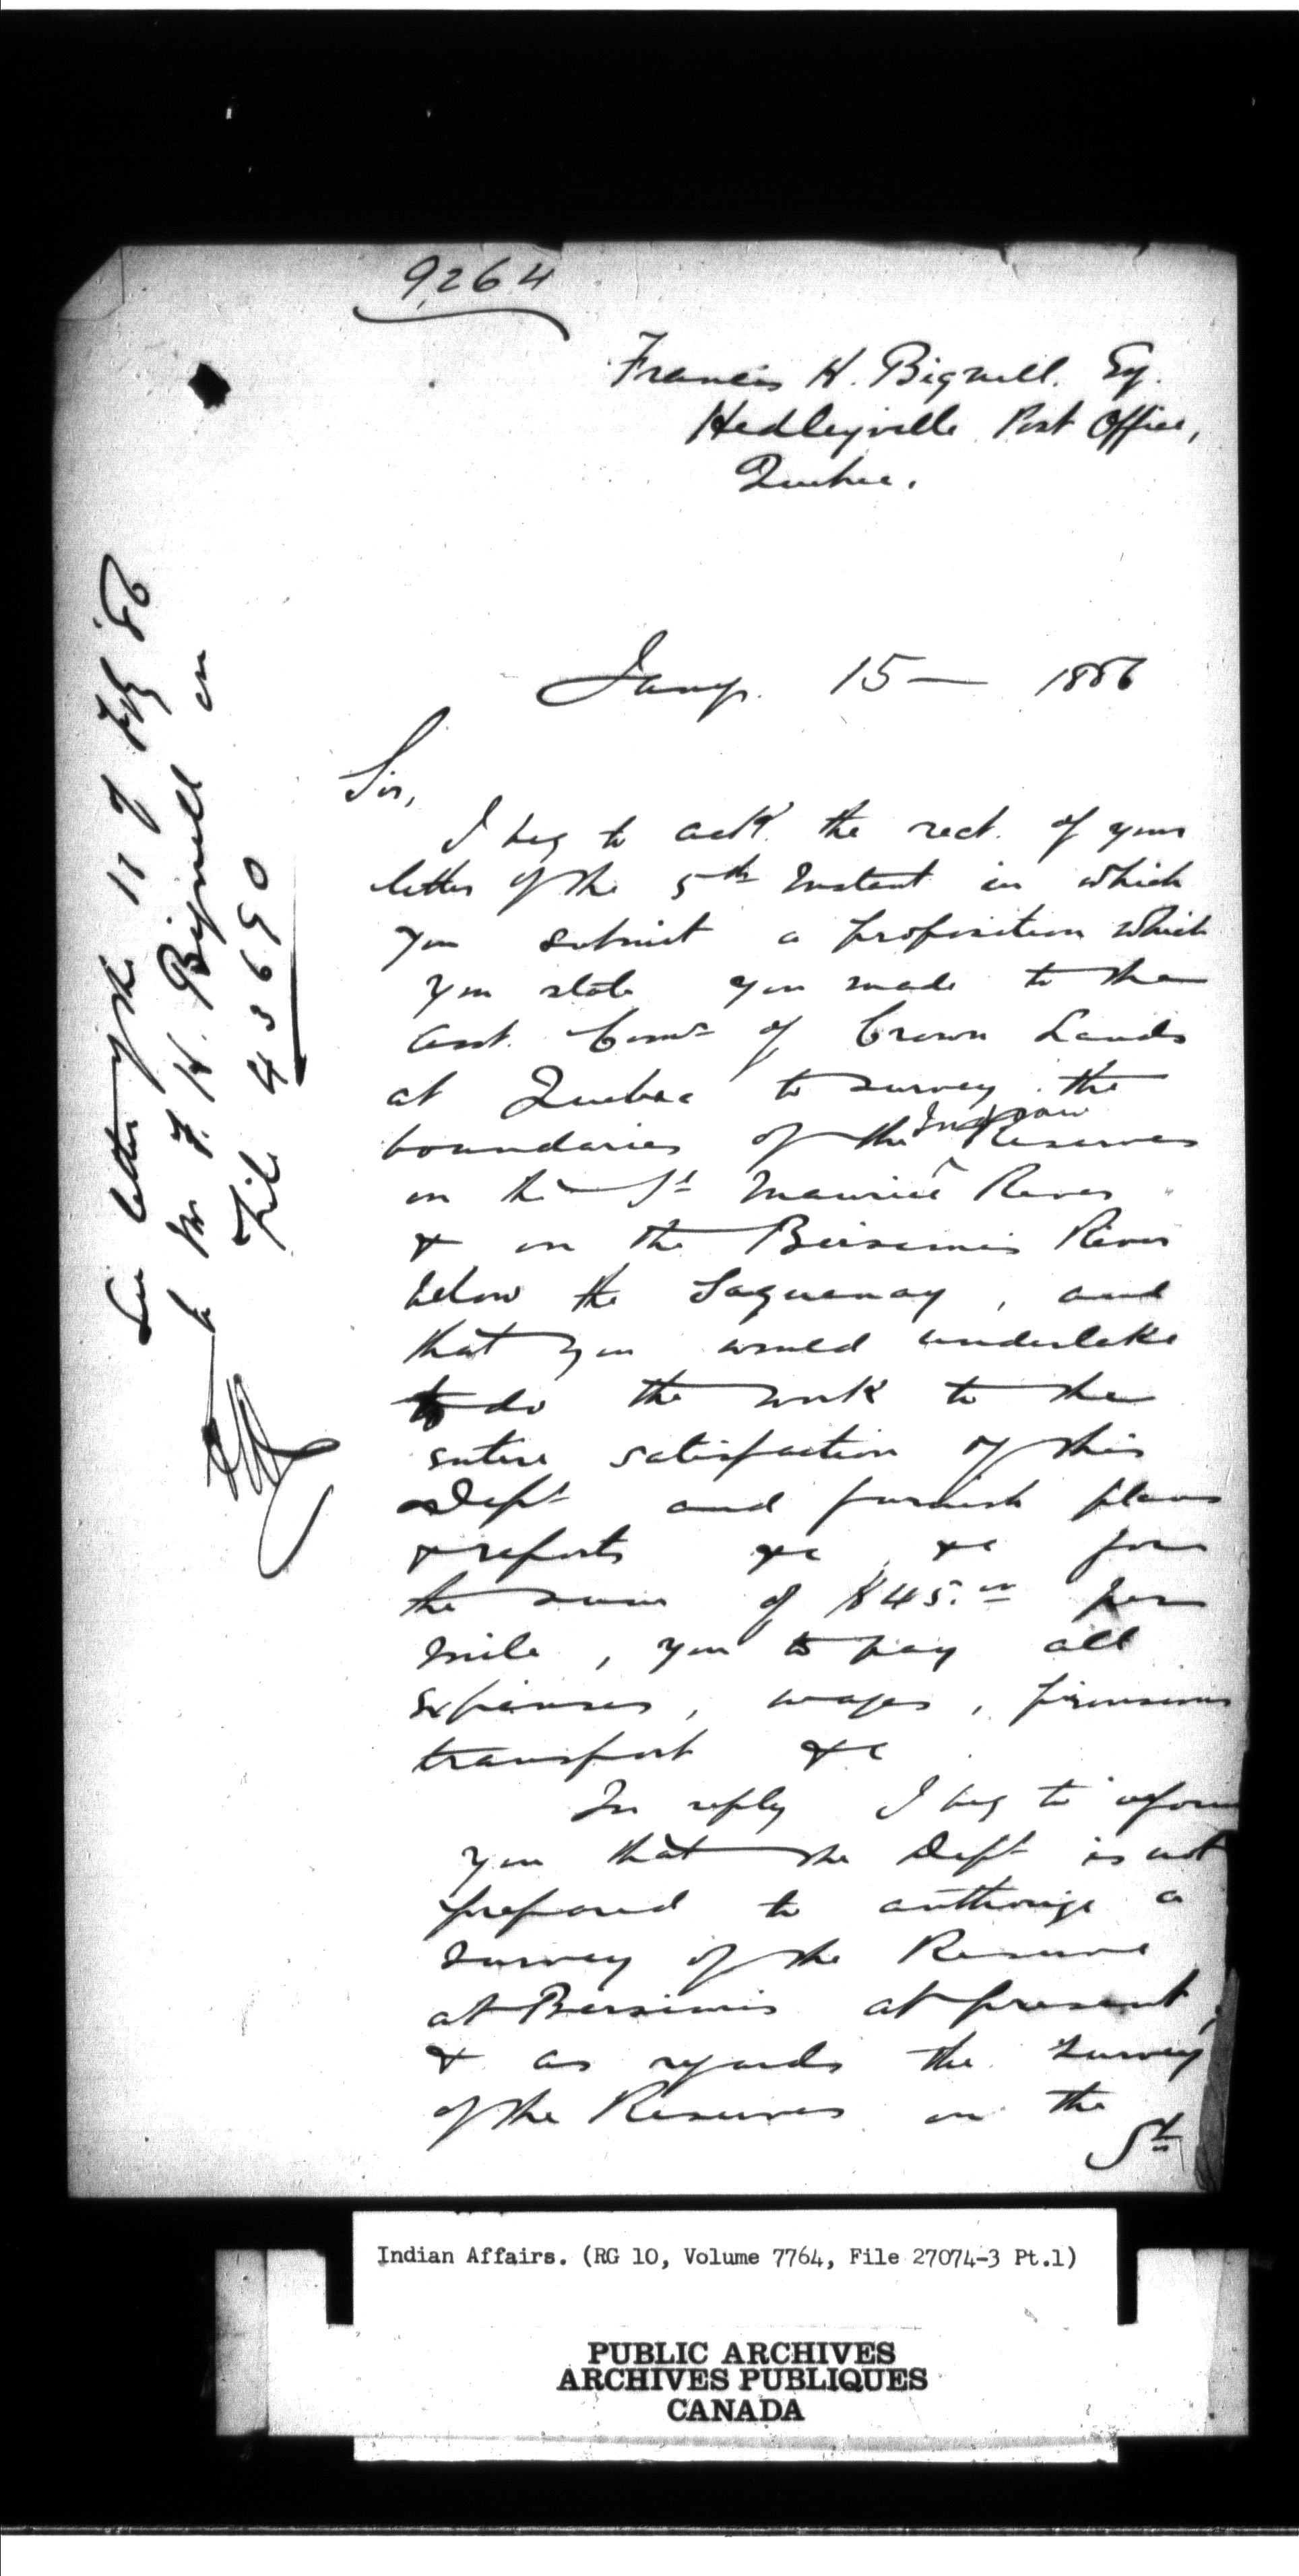 9264
Francis H. Bignell. Esq.
Hedleyville Post Office,
Quebec.
Jany. 15 — 1886
Sir,
I beg to ackg the rect. of your
letter of the 5th Instant in which
you submit a proposition which
you state you made to the
Asst. Comr of Crown Lands
at Quebec to survey the
boundaries of the Indian Reserves
on the St Maurice River
& on the Bersimis River
below the Saguenay, and
that you would undertake
to do the work to the
entire satisfaction of this
Dept and furnish plans
& reports &c &c for
the sum of $45.00 per
mile, you to pay all
expenses, wages, provisions
transport &c
In reply I beg to inform
you that the Dept is not
prepared to authorize a
survey of the Reserve
at Bersimis at present,
& as regards the survey
of the Reserves on the
St
See letter of the 11 of Feby '86
to Mr F. H. Bignell on
File 43690
Indian Affairs. (RG 10, Volume 7764, File 27074-3 Pt.1)
PUBLIC ARCHIVES
ARCHIVES PUBLIQUES
CANADA